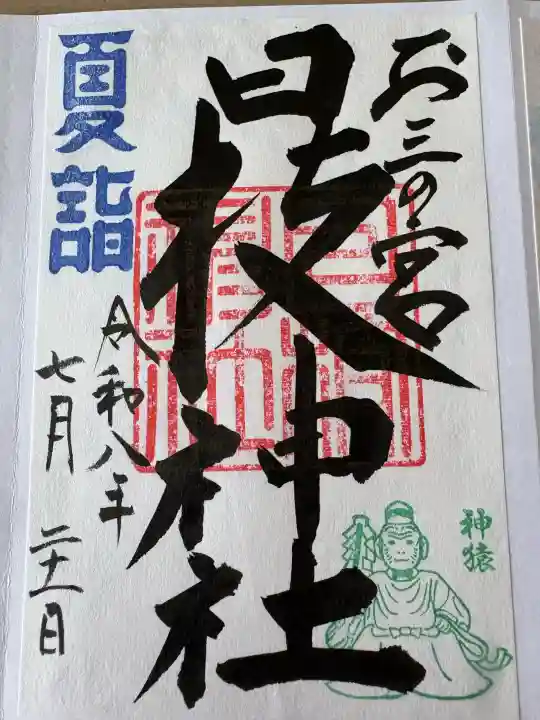 お三の宮
日枝神社
夏詣
令和八年
七月二十一日
神猿